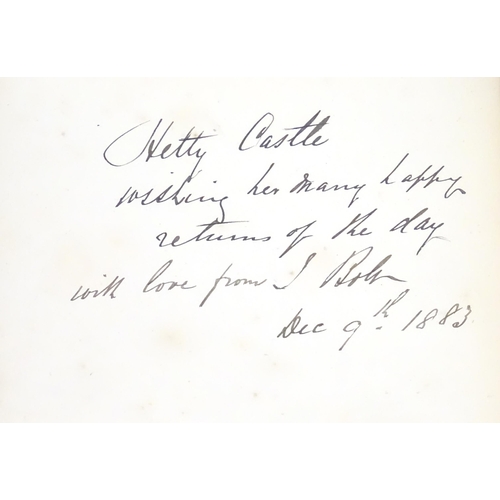 Hetty Castle
wishing her many happy
returns of the day
with love from J
Dec 9th 1883